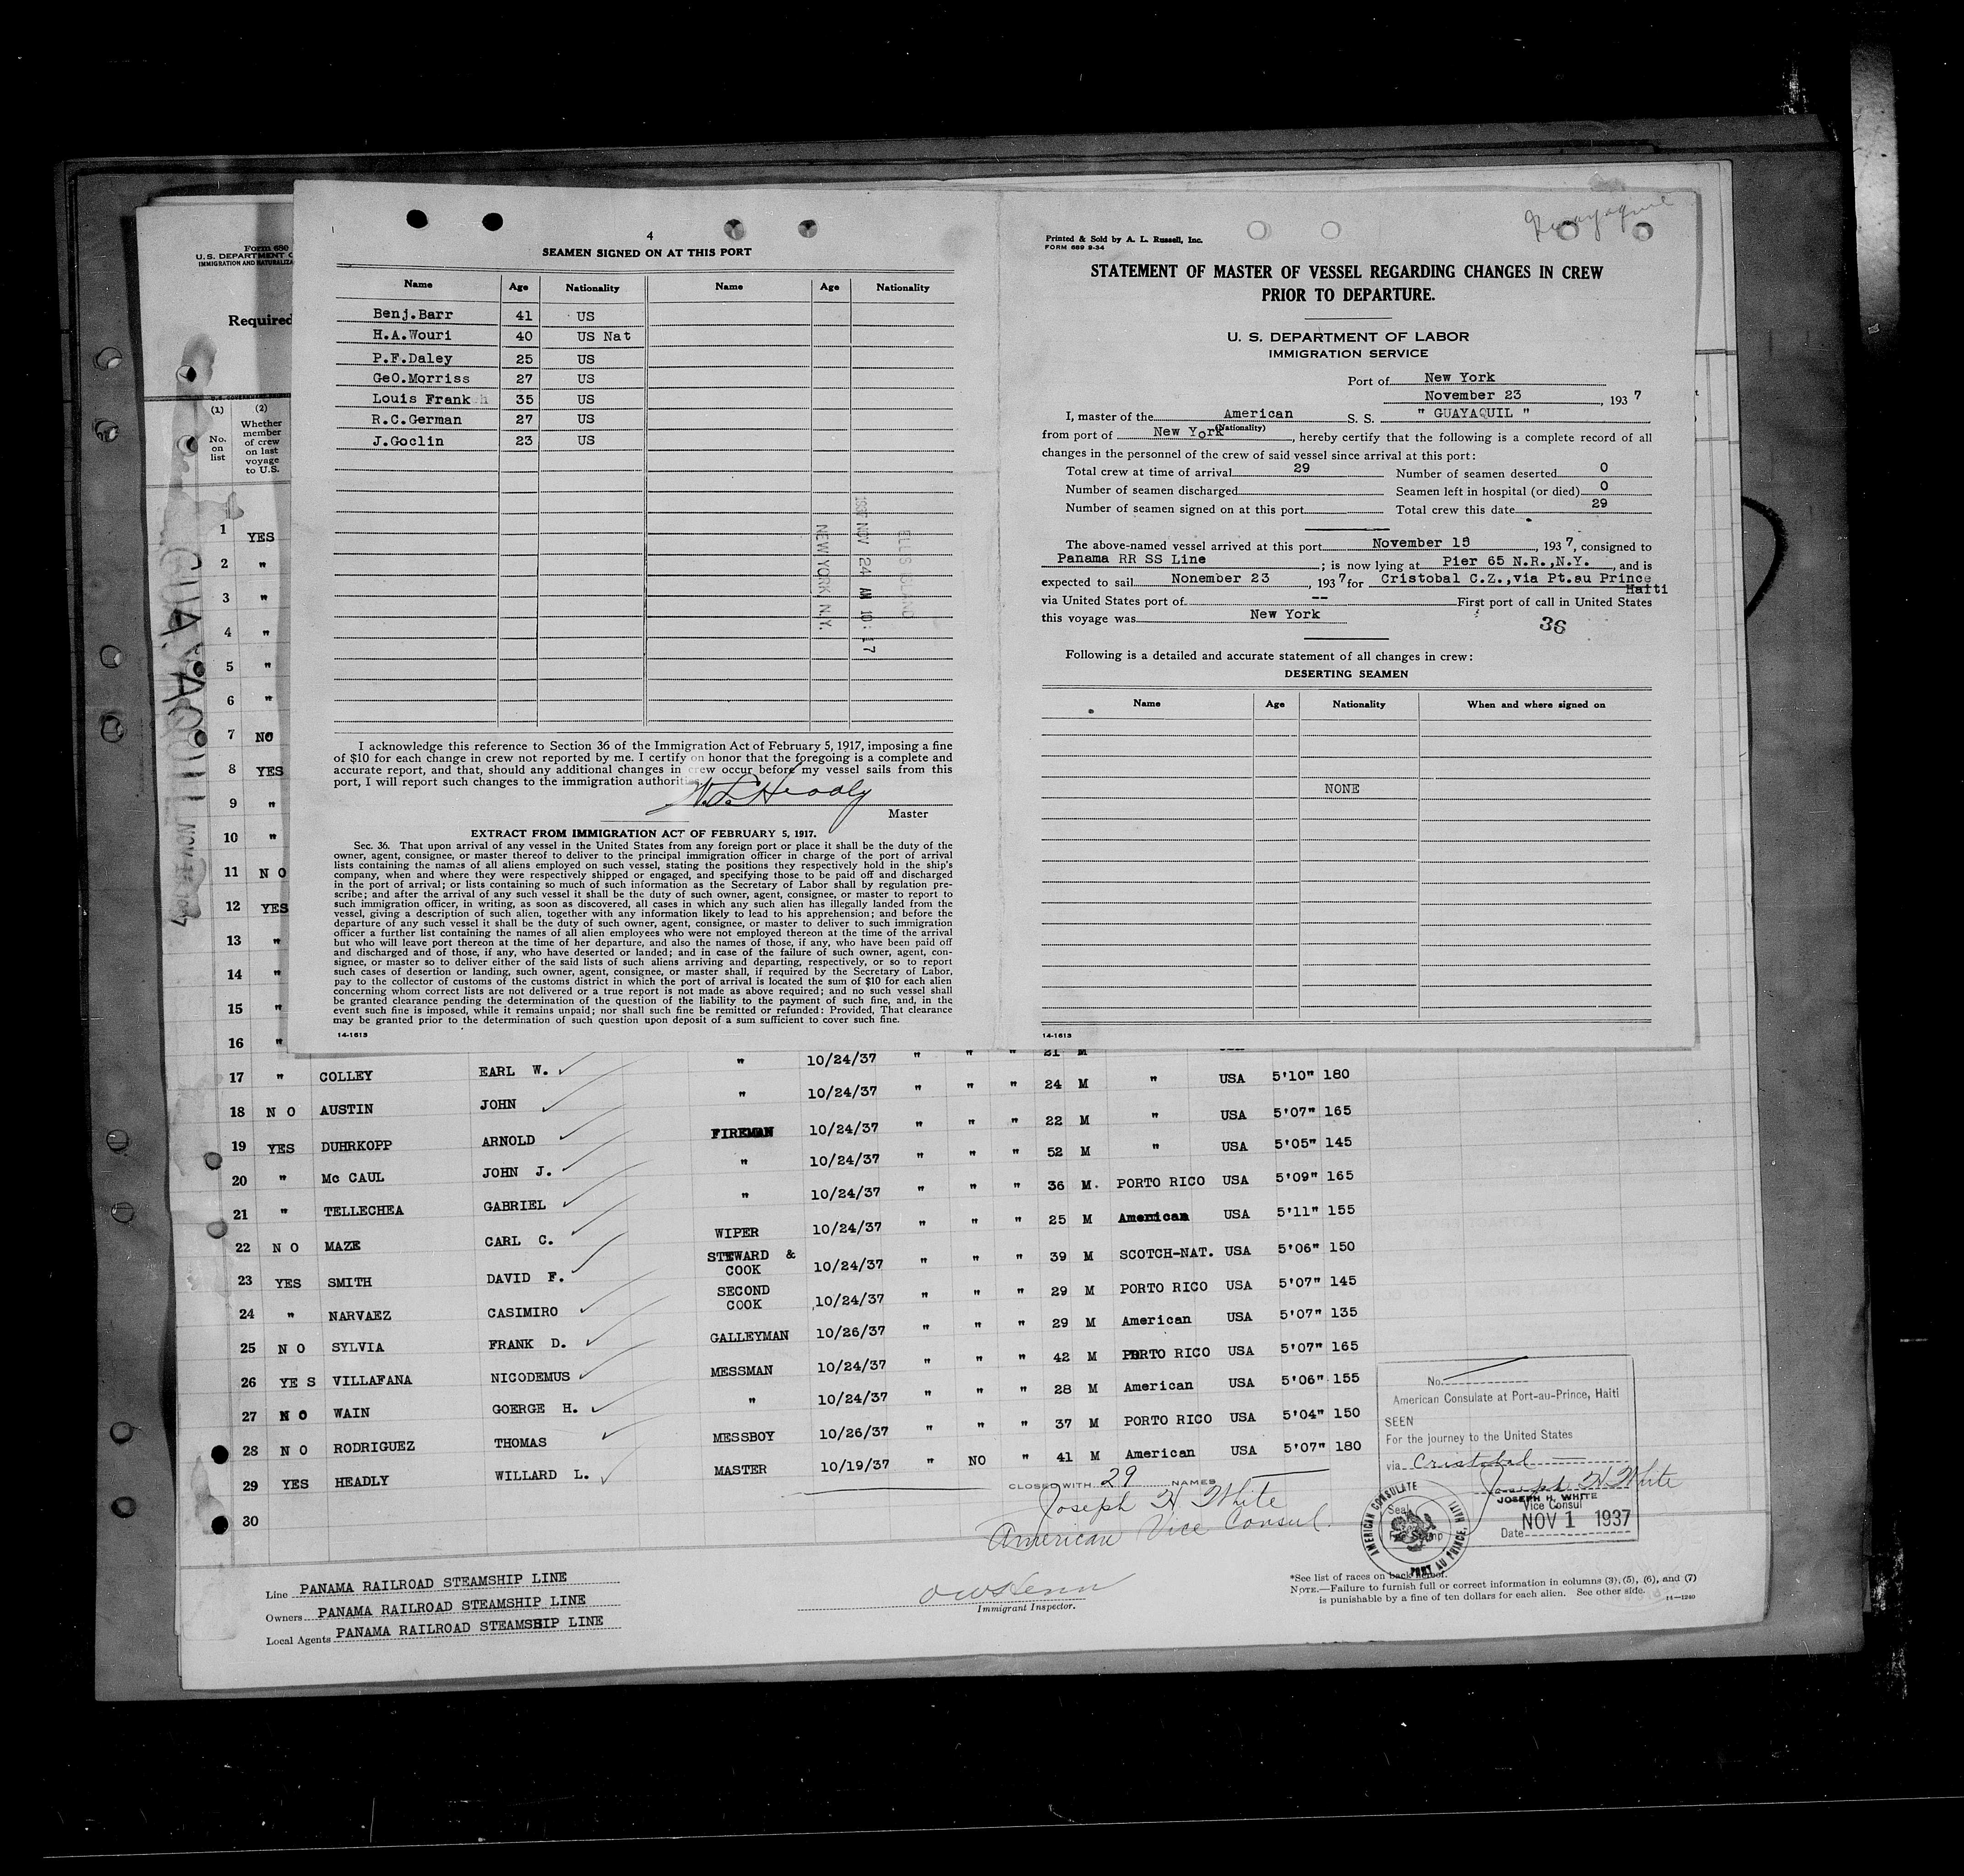 Form 680
U. S. DEPARTMENT O
IMMIGRATION AND NATURALIZA
Required
(1) (2)
No. on list
Whether member of crew on last voyage to U.S.
1 YES
2 "
3 "
4 "
5 "
6 "
7 NO
8 YES
9 "
10 "
11 N O
12 YES
13 "
14 "
15 "
16 "
GUAYAQUIL NOV
4
SEAMEN SIGNED ON AT THIS PORT
Name Age Nationality Name Age Nationality
Benj.Barr 41 US
H.A.Wouri 40 US Nat
P.F.Daley 25 US
GeO.Morriss 27 US
Louis Frank 35 US
R.C.German 27 US
J.Goclin 23 US
ELLIS ISLAND
1937 NOV 24 AM 10: 17
NEW YORK N.Y.
I acknowledge this reference to Section 36 of the Immigration Act of February 5, 1917, imposing a fine
of $10 for each change in crew not reported by me. I certify on honor that the foregoing is a complete and
accurate report, and that, should any additional changes in crew occur before my vessel sails from this
port, I will report such changes to the immigration authorities
W.L. Headly
Master
EXTRACT FROM IMMIGRATION ACT OF FEBRUARY 5, 1917.
Sec. 36. That upon arrival of any vessel in the United States from any foreign port or place it shall be the duty of the
owner, agent, consignee, or master thereof to deliver to the principal immigration officer in charge of the port of arrival
lists containing the names of all aliens employed on such vessel, stating the positions they respectively hold in the ship's
company, when and where they were respectively shipped or engaged, and specifying those to be paid off and discharged
in the port of arrival; or lists containing so much of such information as the Secretary of Labor shall by regulation pre-
scribe; and after the arrival of any such vessel it shall be the duty of such owner, agent, consignee, or master to report to
such immigration officer, in writing, as soon as discovered, all cases in which any such alien has illegally landed from the
vessel, giving a description of such alien, together with any information likely to lead to his apprehension; and before the
departure of any such vessel it shall be the duty of such owner, agent, consignee, or master to deliver to such immigration
officer a further list containing the names of all alien employees who were not employed thereon at the time of the arrival
but who will leave port thereon at the time of her departure, and also the names of those, if any, who have been paid off
and discharged and of those, if any, who have deserted or landed; and in case of the failure of such owner, agent, con-
signee, or master so to deliver either of the said lists of such aliens arriving and departing, respectively, or so to report
such cases of desertion or landing, such owner, agent, consignee, or master shall, if required by the Secretary of Labor,
pay to the collector of customs of the customs district in which the port of arrival is located the sum of $10 for each alien
concerning whom correct lists are not delivered or a true report is not made as above required; and no such vessel shall
be granted clearance pending the determination of the question of the liability to the payment of such fine, and, in the
event such fine is imposed, while it remains unpaid; nor shall such fine be remitted or refunded: Provided, That clearance
may be granted prior to the determination of such question upon deposit of a sum sufficient to cover such fine.
14-1613
Guayaquil
Printed & Sold by A. L. Russell, Inc.
FORM 689 9-34
STATEMENT OF MASTER OF VESSEL REGARDING CHANGES IN CREW
PRIOR TO DEPARTURE.
U. S. DEPARTMENT OF LABOR
IMMIGRATION SERVICE
Port of New York
November 23, 1937
I, master of the American S. S. " GUAYAQUIL "
(Nationality)
from port of New York, hereby certify that the following is a complete record of all
changes in the personnel of the crew of said vessel since arrival at this port:
Total crew at time of arrival 29 Number of seamen deserted 0
Number of seamen discharged Seamen left in hospital (or died) 0
Number of seamen signed on at this port Total crew this date 29
The above-named vessel arrived at this port November 15, 1937, consigned to
Panama RR SS Line; is now lying at Pier 65 N.R.,N.Y., and is
expected to sail Nonember 23, 1937 for Cristobal C.Z.,via Pt.au Prince
Haiti
via United States port of -- First port of call in United States
this voyage was New York
36
Following is a detailed and accurate statement of all changes in crew:
DESERTING SEAMEN
Name Age Nationality When and where signed on
NONE
14-1613
" 10/24/37 " " " 21 M
17 " COLLEY EARL W. " 10/24/37 " " " 24 M " USA 5'10" 180
18 N O AUSTIN JOHN FIREMAN 10/24/37 " " " 22 M " USA 5'07" 165
19 YES DUHRKOPP ARNOLD " 10/24/37 " " " 52 M " USA 5'05" 145
20 " Mc CAUL JOHN J. " 10/24/37 " " " 36 M. PORTO RICO USA 5'09" 165
21 " TELLECHEA GABRIEL WIPER 10/24/37 " " " 25 M American USA 5'11" 155
22 N O MAZE CARL C. STEWARD & COOK 10/24/37 " " " 39 M SCOTCH-NAT. USA 5'06" 150
23 YES SMITH DAVID F. SECOND COOK 10/24/37 " " " 29 M PORTO RICO USA 5'07" 145
24 " NARVAEZ CASIMIRO GALLEYMAN 10/26/37 " " " 29 M American USA 5'07" 135
25 N O SYLVIA FRANK D. MESSMAN 10/24/37 " " " 42 M PORTO RICO USA 5'07" 165
26 YE S VILLAFANA NICODEMUS " 10/24/37 " " " 28 M American USA 5'06" 155
27 N O WAIN GOERGE H. MESSBOY 10/26/37 " " " 37 M PORTO RICO USA 5'04" 150
28 N O RODRIGUEZ THOMAS MASTER 10/19/37 " NO " 41 M American USA 5'07" 180
29 YES HEADLY WILLARD L.
30
CLOSED WITH 29 NAMES
Joseph H. White
American Vice Consul.
No.
American Consulate at Port-au-Prince, Haiti
SEEN
For the journey to the United States
via Cristobal
Joseph H. White
JOSEPH H. WHITE
Vice Consul
Date NOV 1 1937
AMERICAN CONSULATE
PORT AU PRINCE, HAITI
Seal
Line PANAMA RAILROAD STEAMSHIP LINE
Owners PANAMA RAILROAD STEAMSHIP LINE
Local Agents PANAMA RAILROAD STEAMSHIP LINE
Immigrant Inspector.
*See list of races on back hereof.
NOTE.—Failure to furnish full or correct information in columns (3), (5), (6), and (7)
is punishable by a fine of ten dollars for each alien. See other side.
14—1240